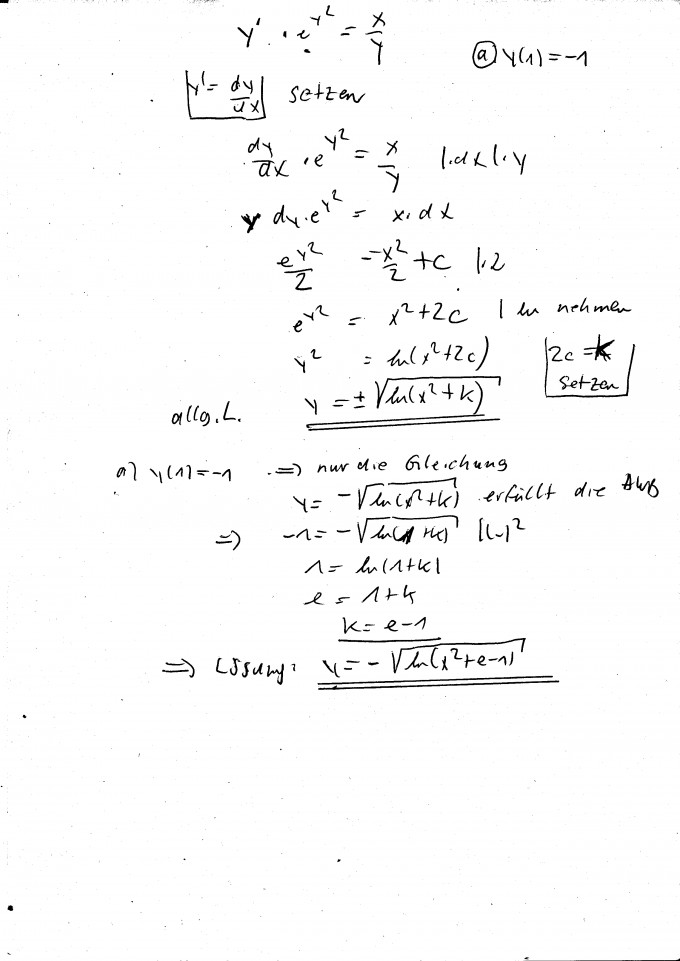 y' · e^{y²} = x/y
ⓐ y(1) = -1
y' = dy/dx setzen
dy/dx · e^{y²} = x/y |·dx |·y
y dy · e^{y²} = x · dx
e^{y²}/2 = x²/2 + C |·2
e^{y²} = x² + 2C | ln nehmen
y² = ln(x² + 2c)
2c = k setzen
allg. L. y = ± √(ln(x² + k))
a) y(1) = -1 ⇒ nur die Gleichung
y = -√(ln(x² + k)) erfüllt die AWB
⇒ -1 = -√(ln(1 + k)) |(..)²
1 = ln(1 + k)
e = 1 + k
k = e - 1
⇒ Lösung: y = -√(ln(x² + e - 1))